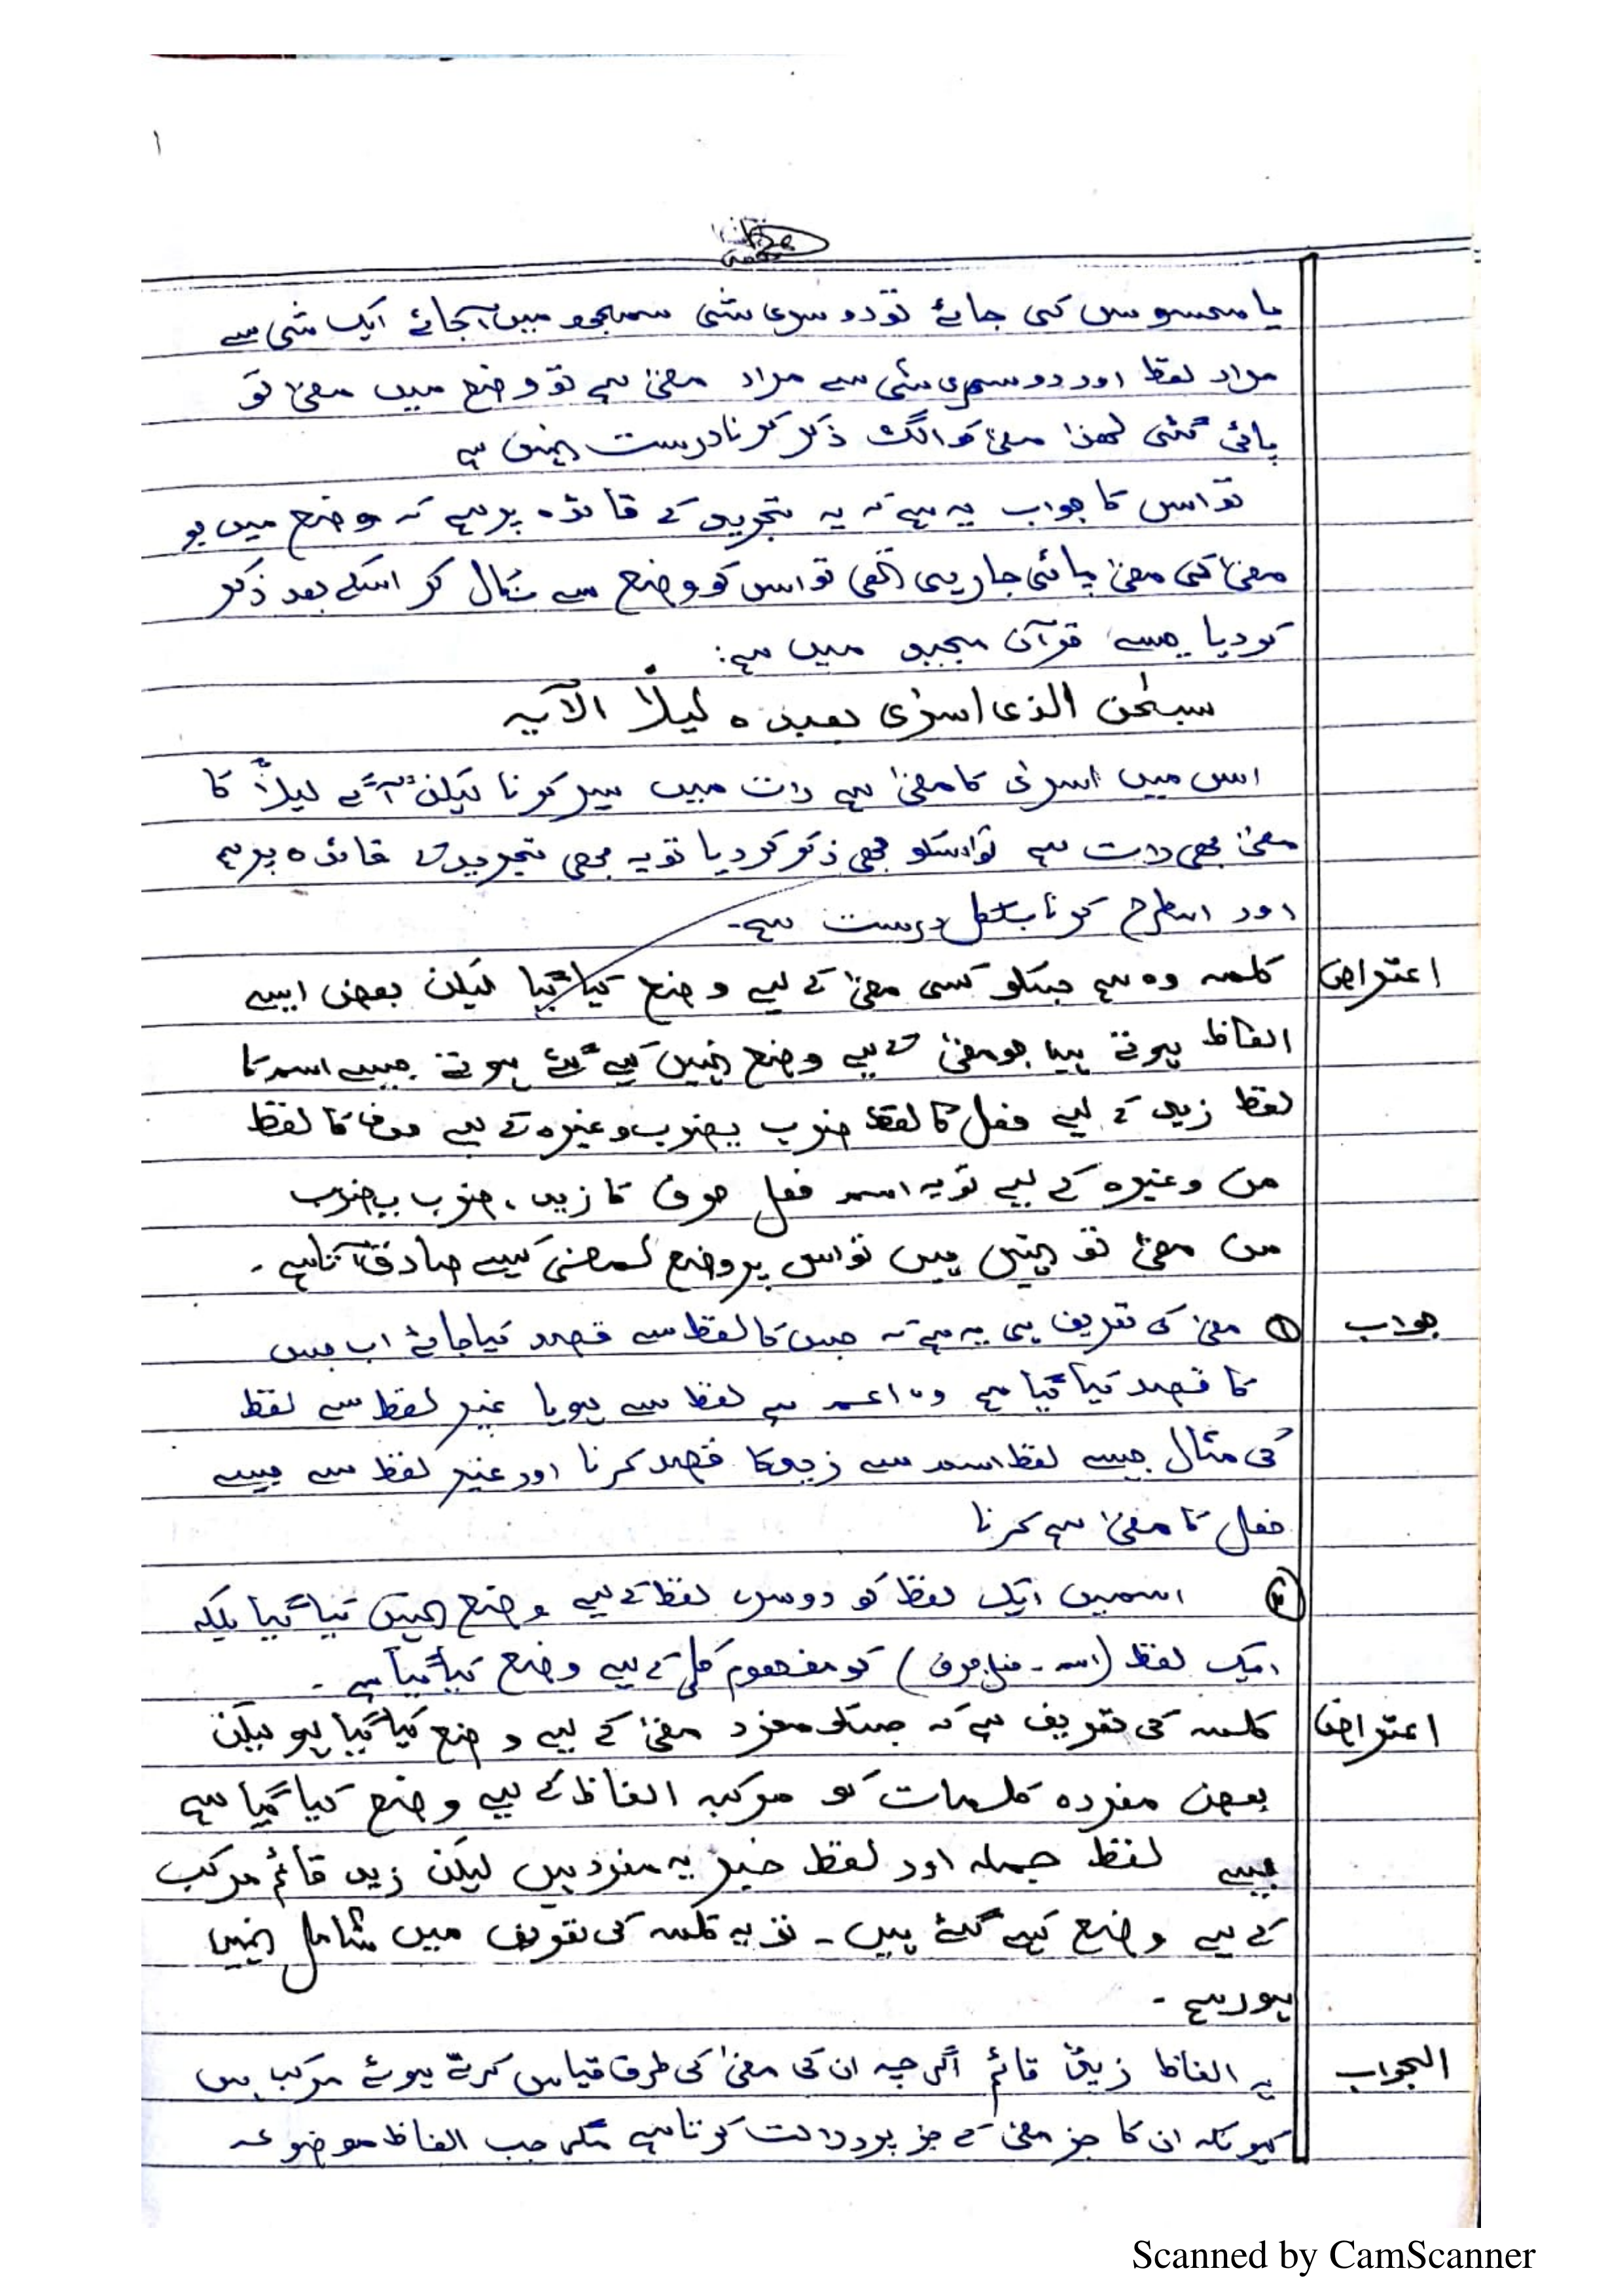 ۱
یا محسوس کی جائے تو دوسری شئی سمجھ میں آجائے ایک شئی سے
مراد لفظ اور دوسری شئی سے مراد معنیٰ ہے تو وضع میں معنیٰ تو
پائی گئی لھذا معنیٰ کو الگ ذکر کرنا درست نہیں ہے
تو اس کا جواب یہ ہے کہ یہ تجرید کے قائدہ پر ہے کہ وضع میں جو
معنیٰ کی معنیٰ پائی جارہی تھی تو اس کو وضع سے نکال کر اسکے بعد ذکر
کردیا جیسے قرآن مجید میں ہے:
سبحٰن الذی اسرٰی بعبدہ لیلاً الآیہ
اس میں اسریٰ کا معنیٰ ہے رات میں سیر کرنا لیکن آگے لیلاً کا
معنیٰ بھی رات ہے تو اسکو بھی ذکر کردیا تو یہ بھی تجرید کے قائدہ پر ہے
اور اسطرح کرنا بلکل درست ہے۔
اعتراض کلمہ وہ ہے جسکو کسی معنیٰ کے لیے وضع کیا گیا لیکن بعض ایسے
الفاظ ہوتے ہیں جو معنیٰ کے لیے وضع نہیں کیے گئے ہوتے جیسے اسم کا
لفظ زید کے لیے فعل کا لفظ ضرب یضرب وغیرہ کے لیے حرف کا لفظ
من وغیرہ کے لیے تو یہ اسم فعل حرف کا زید، ضرب یضرب
من معنیٰ تو نہیں ہیں تو اس پر وضع لمعنی کیسے صادق آتا ہے۔
جواب ① معنیٰ کی تعریف ہی یہ ہے کہ جس کا لفظ سے قصد کیا جائے اب جس
کا قصد کیا گیا ہے وہ اعم ہے لفظ سے ہو یا غیر لفظ سے لفظ
کی مثال جیسے لفظ اسم سے زید کا قصد کرنا اور غیر لفظ سے جیسے
فعل کا معنیٰ ہے کرنا
② اسمیں ایک لفظ کو دوسرے لفظ کے لیے وضع نہیں کیا گیا بلکہ
ایک لفظ (اسم ۔ فعل حرف) کو مفھوم کلی کے لیے وضع کیا گیا ہے ۔
اعتراض کلمہ کی تعریف ہے کہ جسکو مفرد معنیٰ کے لیے وضع کیا گیا ہو لیکن
بعض مفردہ کلمات کو مرکبہ الفاظ کے لیے وضع کیا گیا ہے
جیسے لفظ جملہ اور لفظ خبر یہ مفرد ہیں لیکن زید قائم مرکب
کے لیے وضع کیے گئے ہیں ۔ تو یہ کلمہ کی تعریف میں شامل نہیں
ہورہے ۔
الجواب یہ الفاظ زیدٌ قائم اگرچہ ان کی معنیٰ کی طرف قیاس کرتے ہوئے مرکب ہیں
کیونکہ ان کا جز معنیٰ کے جز پر دلالت کرتا ہے مگر جب الفاظ موضوعہ
Scanned by CamScanner